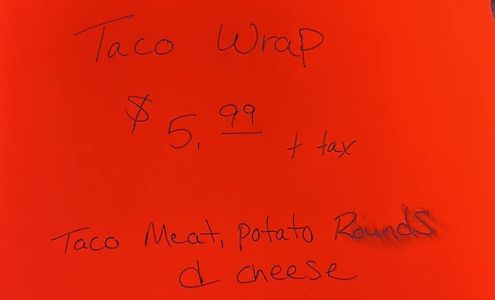 Taco Wrap
$5.99 + tax
Taco Meat, potato Rounds
& cheese